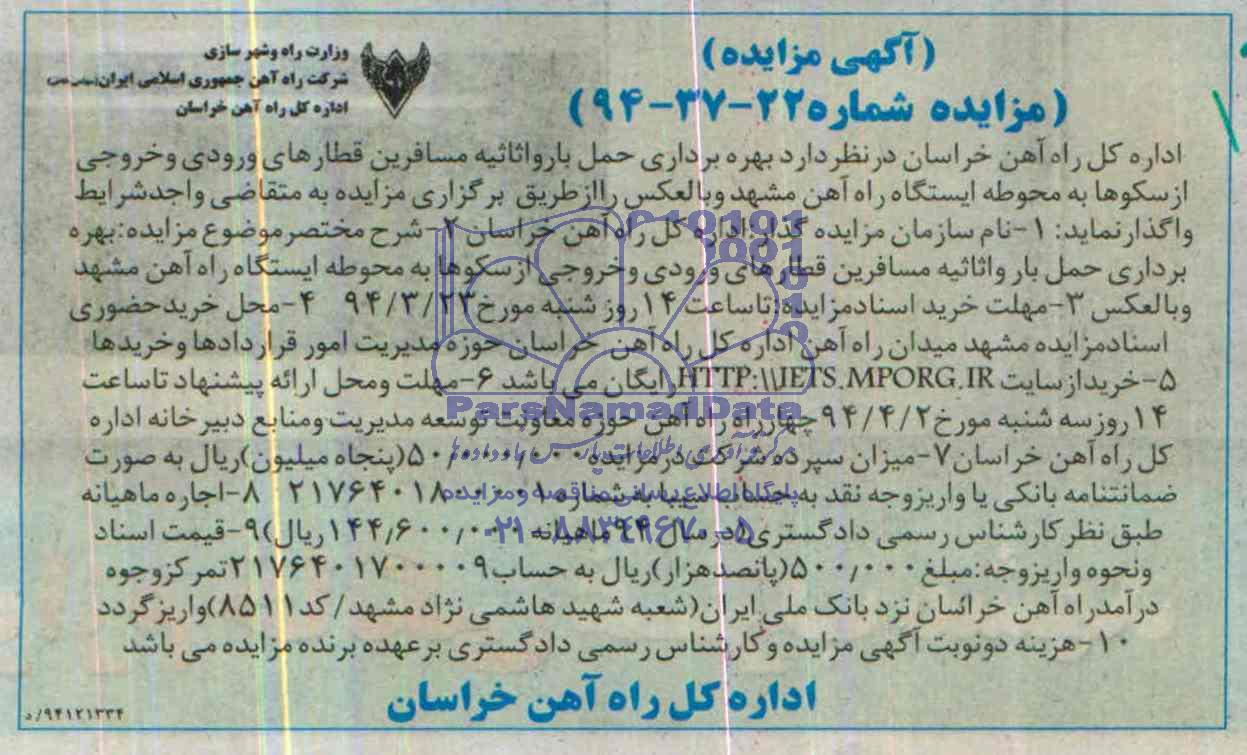 وزارت راه وشهر سازی
شرکت راه آهن جمهوری اسلامی ایران
اداره کل راه آهن خراسان
(آگهی مزایده)
(مزایده شماره ۲۲-۳۷-۹۴)
اداره کل راه آهن خراسان درنظر دارد بهره برداری حمل بارواثاثیه مسافرین قطارهای ورودی وخروجی
ازسکوها به محوطه ایستگاه راه آهن مشهد وبالعکس راازطریق برگزاری مزایده به متقاضی واجدشرایط
واگذارنماید: ۱-نام سازمان مزایده گذار:اداره کل راه آهن خراسان ۲-شرح مختصرموضوع مزایده:بهره
برداری حمل بار واثاثیه مسافرین قطارهای ورودی وخروجی ازسکوها به محوطه ایستگاه راه آهن مشهد
وبالعکس ۳-مهلت خرید اسنادمزایده:تاساعت ۱۴ روز شنبه مورخ ۹۴/۳/۲۳ ۴-محل خریدحضوری
اسنادمزایده مشهد میدان راه آهن اداره کل راه آهن خراسان حوزه مدیریت امور قراردادها وخریدها
۵-خریدازسایت HTTP:\\IETS.MPORG.IR رایگان می باشد ۶-مهلت ومحل ارائه پیشنهاد تاساعت
۱۴ روزسه شنبه مورخ ۹۴/۴/۲ چهارراه راه آهن حوزه معاونت توسعه مدیریت ومنابع دبیرخانه اداره
کل راه آهن خراسان ۷-میزان سپرده شرکت درمزایده ۵۰/۰۰۰/۰۰۰(پنجاه میلیون)ریال به صورت
ضمانتنامه بانکی یا واریزوجه نقد به حساب سیبا به شماره ۸-اجاره ماهیانه
طبق نظر کارشناس رسمی دادگستری(درسال ۹۴ ماهیانه ۱۴۴/۶۰۰/۰۰۰ ریال) ۹-قیمت اسناد
ونحوه واریزوجه:مبلغ ۵۰۰/۰۰۰(پانصدهزار)ریال به حساب ۲۱۷۶۴۰۱۷۰۰۰۰۹ تمرکزوجوه
درآمدراه آهن خراسان نزد بانک ملی ایران(شعبه شهید هاشمی نژاد مشهد/ کد ۸۵۱۱)واریزگردد
۱۰-هزینه دونوبت آگهی مزایده وکارشناس رسمی دادگستری برعهده برنده مزایده می باشد
اداره کل راه آهن خراسان
۹۴۱۲۱۳۳۴/د
ParsNamadData
پایگاه اطلاع رسانی مناقصه ومزایده
۰۲۱-۸۸۳۴۹۶۷۰-۵